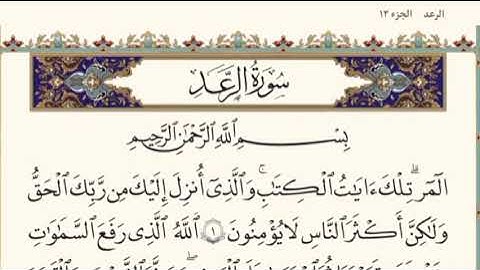 الرعد الجزء ١٣
سُورَةُ الرَّعْدِ
بِسْمِ اللَّهِ الرَّحْمَٰنِ الرَّحِيمِ
الٓمٓر ۚ تِلْكَ ءَايَٰتُ ٱلْكِتَٰبِ ۗ وَٱلَّذِىٓ أُنزِلَ إِلَيْكَ مِن رَّبِّكَ ٱلْحَقُّ
وَلَٰكِنَّ أَكْثَرَ ٱلنَّاسِ لَا يُؤْمِنُونَ ١ ٱللَّهُ ٱلَّذِى رَفَعَ ٱلسَّمَٰوَٰتِ